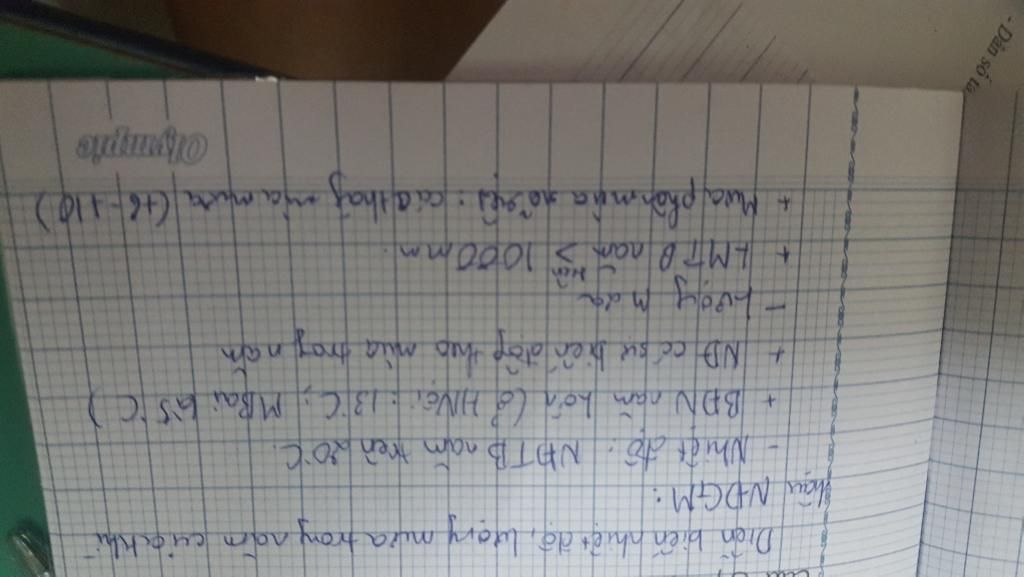 Diễn biến nhiệt độ, lượng mưa trong năm của khí
hậu NĐGM:
- Nhiệt độ: NĐTB năm trên 20°C.
+ BĐN năm lớn (ở HNội: 13°C; MBai °C)
+ NĐ có sự biến động theo mùa trong năm
- Lượng mưa
+ LMTB năm > 1000mm.
+ Mưa phân mùa rõ rệt: các tháng mùa mưa (t6-t10)
Olympic
- Dân số